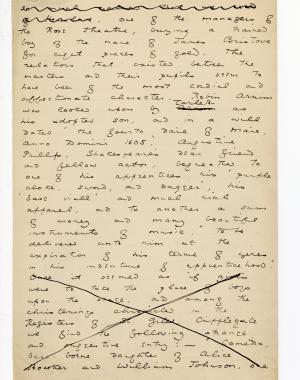 one of the managers of
the Rose Theatre, buying a trained
boy of the name of James Bristowe
for eight pieces of gold. The
relations that existed between the
masters and their pupils seem to
have been of the most cordial and
affectionate character. Robin Armin
was looked upon by Tarleton as
his adopted son, and in a will
dated "the fourth daie of Maie,
Anno Domini 1605," Augustine
Phillips, Shakespeare's dear friend
and fellow actor, bequeathes to
one of his apprentices his "purple
cloke, sword, and dagger," his
"base viall" and much rich
apparel, and to another a sum
of money and many beautiful
instruments of music, "to be
delivered unto him at the
expiration of his terme of yeres
in his indenture of apprenticehood."
Once it seemed as if girls
were to take the place of boys
upon the stage, and among the
christenings chronicled in the
Registers of St. Giles' Cripplegate
we find the following strange
and suggestive entry: "Comedia,
base borne daughter of Alice
Bowker and William Johnson, one